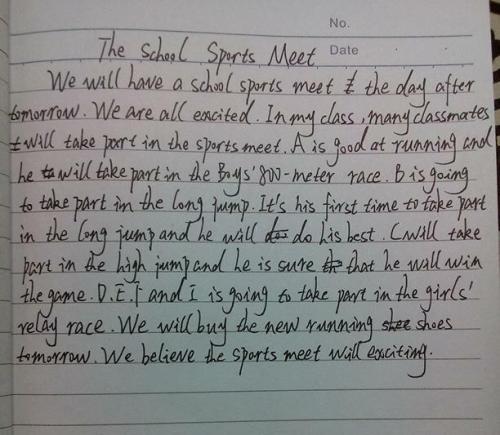 No.
The School Sports Meet Date
We will have a school sports meet the day after
tomorrow. We are all excited. In my class, many classmates
will take part in the sports meet. A is good at running and
he will take part in the Boys' 800-meter race. B is going
to take part in the long jump. It's his first time to take part
in the long jump and he will do his best. C will take
part in the high jump and he is sure that he will win
the game. D.E.F and I is going to take part in the girls'
relay race. We will buy the new running shoes
tomorrow. We believe the sports meet will exciting.